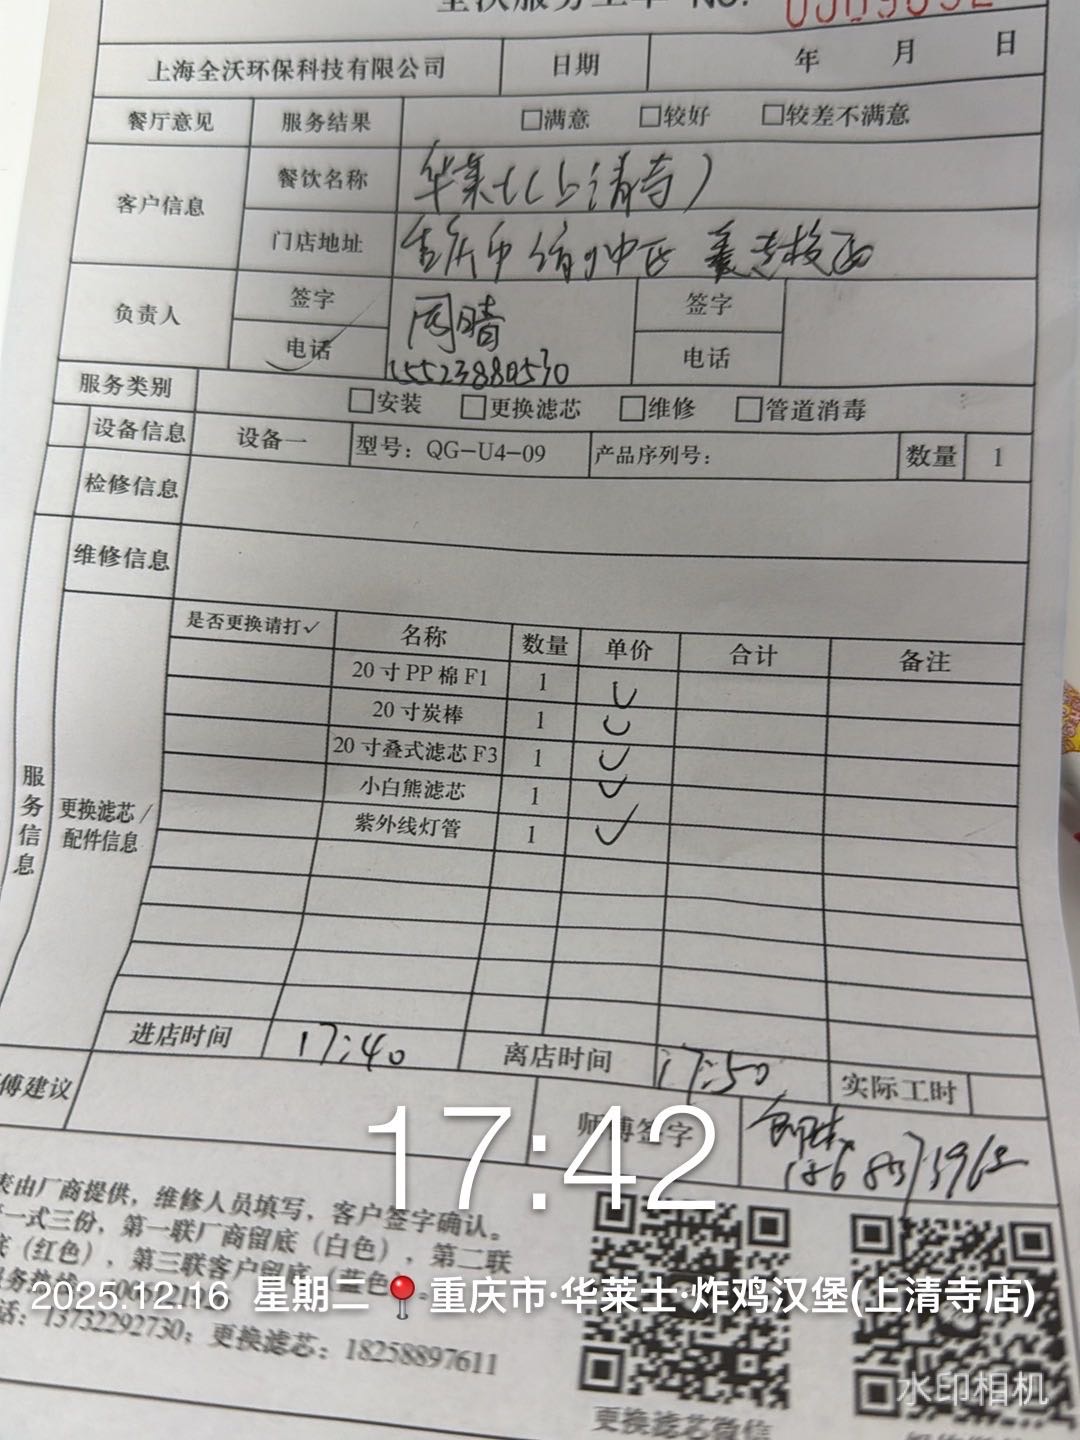 全沃服务工单 No.
上海全沃环保科技有限公司 日期 年 月 日
餐厅意见 服务结果 □满意 □较好 □较差不满意
客户信息 餐饮名称 华莱士(上清寺)
门店地址 重庆市渝中区
负责人 签字 周晴 签字
电话 15523880530 电话
服务类别 □安装 □更换滤芯 □维修 □管道消毒
设备信息 设备一 型号：QG-U4-09 产品序列号： 数量 1
检修信息
维修信息
服务信息
更换滤芯/配件信息
是否更换请打✓ 名称 数量 单价 合计 备注
20寸PP棉F1 1 ✓
20寸炭棒 1 ✓
20寸叠式滤芯F3 1 ✓
小白熊滤芯 1 ✓
紫外线灯管 1 ✓
进店时间 17:40 离店时间 17:50 实际工时
傅建议 师傅签字
17:42
表由厂商提供，维修人员填写，客户签字确认。
一式三份，第一联厂商留底（白色），第二联
底（红色），第三联客户留底（蓝色）。
2025.12.16 星期二 📍重庆市·华莱士·炸鸡汉堡(上清寺店)
话：13732292730；更换滤芯：18258897611
水印相机
更换滤芯微信